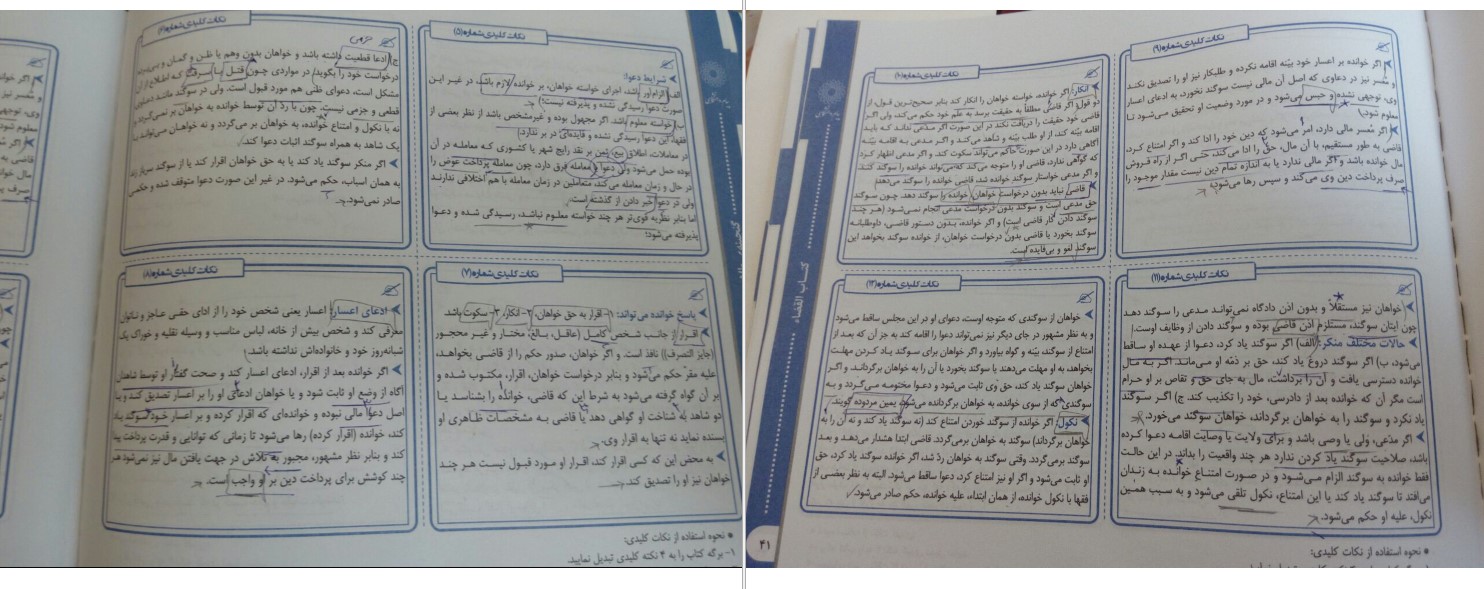 نکات کلیدی شماره (۵)
شرایط دعوا:
الف) الزام‌آور باشد، اجرای خواسته خواهان، بر خوانده لازم باشد در غیر این
صورت دعوا رسیدگی نشده و پذیرفته نیست؛
ب) خواسته معلوم باشد. اگر مجهول بوده و غیرمشخص باشد از نظر بعضی از
فقها، این دعوا رسیدگی نشده و فایده‌ای در بر ندارد.
در معاملات، اطلاق بیع ثمن بر نقد رایج شهر یا کشوری که معامله در آن
بوده حمل می‌شود ولی دعوا و معامله فرق دارد، چون معامله پرداخت عوض را
در حال و زمان معامله می‌کند، متعاملین در زمان معامله با هم اختلافی ندارند
ولی در دعوا خبر دادن از گذشته است.
اما بنابر نظریه قوی‌تر هر چند خواسته معلوم نباشد، رسیدگی شده و دعوا
پذیرفته می‌شود؛
نکات کلیدی شماره (۶)
جزمی
ج) ادعا قطعیت داشته باشد و خواهان بدون وهم یا ظن و گمان و
درخواست خود را بگوید/ در مواردی چون قتل یا سرقت که اطلاع از آن
مشکل است، دعوای ظنی هم مورد قبول است. ولی در سوگند مانند دعوای
قطعی و جزمی نیست. چون با رد آن توسط خوانده به خواهان بر نمی‌گردد و
نه با نکول و امتناع خوانده، به خواهان بر می‌گردد و نه خواهان می‌تواند با
یک شاهد به همراه سوگند اثبات دعوا کند.
اگر منکر سوگند یاد کند یا به حق خواهان اقرار کند یا از سوگند سرباز زند
به همان اسباب، حکم می‌شود. در غیر این صورت دعوا متوقف شده و حکمی
صادر نمی‌شود.
نکات کلیدی شماره (۷)
پاسخ خوانده می‌تواند: ۱- اقرار به حق خواهان، ۲- انکار، ۳- سکوت باشد.
اقرار: از جانب شخص کامل (عاقل، بالغ، مختار و غیر محجور
(جایز التصرف)) نافذ است. و اگر خواهان، صدور حکم را از قاضی بخواهد،
علیه مقر حکم می‌شود و بنابر درخواست خواهان، اقرار، مکتوب شده و
بر آن گواه گرفته می‌شود به شرط این که قاضی، خوانده را بشناسد یا
دو شاهد به شناخت او گواهی دهد یا قاضی به مشخصات ظاهری او
بسنده نماید نه تنها به اقرار وی.
به محض این که کسی اقرار کند، اقرار او مورد قبول نیست هر چند
خواهان نیز او را تصدیق کند.
نکات کلیدی شماره (۸)
ادعای اعسار: اعسار یعنی شخص خود را از ادای حقی عاجز و ناتوان
معرفی کند و شخص بیش از خانه، لباس مناسب و وسیله نقلیه و خوراک یک
شبانه‌روز خود و خانواده‌اش نداشته باشد.
اگر خوانده بعد از اقرار، ادعای اعسار کند و صحت گفتار او توسط شاهدان
آگاه از وضع او ثابت شود و یا خواهان ادعای او را بر اعسار تصدیق کند و یا
اصل دعوا مالی نبوده و خوانده‌ای که اقرار کرده و بر اعسار خود سوگند یاد
کند، خوانده (اقرار کرده) رها می‌شود تا زمانی که توانایی و قدرت پرداخت پیدا
کند و بنابر نظر مشهور، مجبور به تلاش در جهت یافتن مال نیز نمی‌شود هر
چند کوشش برای پرداخت دین بر او واجب است.
● نحوه استفاده از نکات کلیدی:
۱- برگه کتاب را به ۴ نکته کلیدی تبدیل نمایید
نکات کلیدی شماره (۹)
اگر خوانده بر اعسار خود بیّنه اقامه نکرده و طلبکار نیز او را تصدیق نکند
و معسر نیز در دعاوی که اصل آن مالی نیست سوگند نخورد، به ادعای اعسار
وی، توجهی نشده و حبس می‌شود و در مورد وضعیت او تحقیق می‌شود تا
معلوم شود.
اگر معسر مالی دارد، امر می‌شود که دین خود را ادا کند و اگر امتناع کرد،
قاضی به طور مستقیم، با آن مال، حق را ادا می‌کند، حتی اگر از راه فروش
مال خوانده باشد و اگر مالی ندارد یا به اندازه تمام دین نیست مقدار موجود را
صرف پرداخت دین وی می‌کند و سپس رها می‌شود.
نکات کلیدی شماره (۱۰)
انکار: اگر خوانده، خواسته خواهان را انکار کند بنابر صحیح‌ترین قول، از
دو قول اگر قاضی مطلقاً به حقیقت برسد به علم خود حکم می‌کند، ولی اگر
قاضی خود حقیقت را دریافت نکند در این صورت اگر مدعی نداند که باید
اقامه بیّنه کند، از او طلب بیّنه و شاهد می‌کند و اگر مدعی به اقامه بیّنه
آگاهی دارد در این صورت حاکم می‌تواند سکوت کند. و اگر مدعی اظهار کرد
که گواهی ندارد، قاضی او را متوجه می‌کند که می‌تواند خوانده را سوگند کند.
و اگر مدعی خواستار سوگند خوانده شد، قاضی خوانده را سوگند می‌دهد؛
قاضی نباید بدون درخواست خواهان، خوانده را سوگند دهد. چون سوگند
حق مدعی است و سوگند بدون درخواست مدعی انجام نمی‌شود (هر چند
سوگند دادن کار قاضی است) و اگر خوانده، بدون دستور قاضی، داوطلبانه
سوگند بخورد یا قاضی بدون درخواست خواهان، از خوانده سوگند بخواهد این
سوگند لغو و بی‌فایده است.
کتاب القضاء
نکات کلیدی شماره (۱۱)
خواهان نیز مستقلاً و بدون اذن دادگاه نمی‌تواند مدعی را سوگند دهد
چون ایتان سوگند، مستلزم اذن قاضی بوده و سوگند دادن از وظایف اوست.
حالات مختلف منکر: الف) اگر سوگند یاد کرد، دعوا از عهده او ساقط
می‌شود، ب) اگر سوگند دروغ یاد کند، حق بر ذمّه او می‌ماند. اگر به مال
خوانده دسترسی یافت و آن را برداشت، مال به جای حق و تقاص بر او حرام
است مگر آن که خوانده بعد از دادرسی، خود را تکذیب کند. ج) اگر سوگند
یاد نکرد و سوگند را به خواهان برگرداند، خواهان سوگند می‌خورد.
اگر مدّعی، ولی یا وصی باشد و برای ولایت یا وصایت اقامه دعوا کرده
باشد، صلاحیت سوگند یاد کردن ندارد هر چند واقعیت را بداند. در این حالت
فقط خوانده به سوگند الزام می‌شود و در صورت امتناع خوانده به زندان
می‌افتد تا سوگند یاد کند یا این امتناع، نکول تلقی می‌شود و به سبب همین
نکول، علیه او حکم می‌شود.
نکات کلیدی شماره (۱۲)
خواهان از سوگندی که متوجه اوست، دعوای او در این مجلس ساقط می‌شود
و به نظر مشهور در جای دیگر نیز نمی تواند دعوا را اقامه کند به جز آن که بعد از
امتناع از سوگند، بیّنه و گواه بیاورد و اگر خواهان برای سوگند یاد کردن مهلت
بخواهد، به او مهلت می‌دهند یا سوگند بخورد یا آن را به خواهان برگرداند. و اگر
خواهان سوگند یاد کند، حق وی ثابت می‌شود و دعوا مختومه می‌گردد و به
سوگندی که از سوی خوانده، به خواهان برگردانده می‌شود، یمین مردوده گویند.
نکول: اگر خوانده از سوگند خوردن امتناع کند (نه سوگند یاد کند و نه آن را به
خواهان برگرداند) سوگند به خواهان برمی‌گردد. قاضی ابتدا هشدار می‌دهد و بعد
سوگند برمی‌گردد. وقتی سوگند به خواهان ردّ شد، اگر خوانده سوگند یاد کرد، حق
او ثابت می‌شود و اگر او نیز امتناع کرد، دعوا ساقط می‌شود. البته به نظر بعضی از
فقها با نکول خوانده، از همان ابتداء، علیه خوانده، حکم صادر می‌شود.
● نحوه استفاده از نکات کلیدی:
۴۱